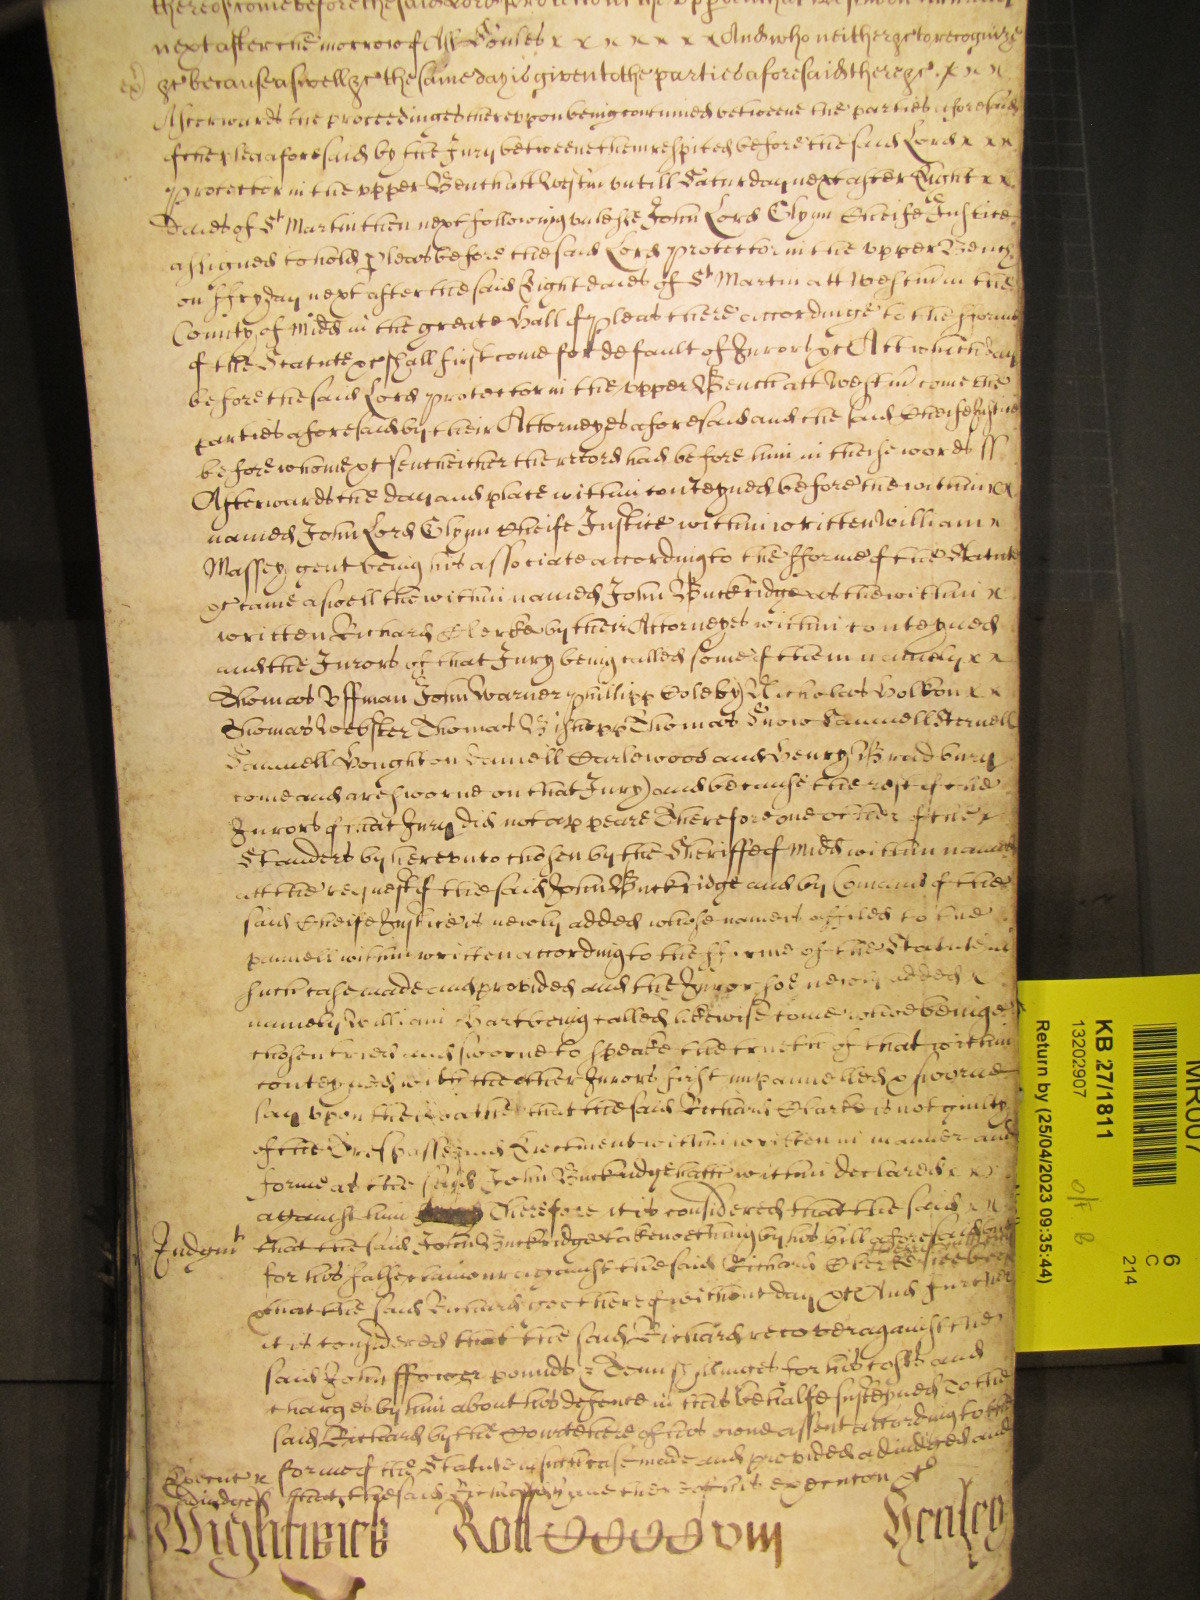 thereof come before the said Lord Protector in the upper Bench att Westm
next after the morrow of All Soules x x x x x x x And who neither &c to recognize
&c because aswell &c the same day is given to the parties aforesaid there &c x x x
Afterwards the proceedinges thereupon being continued betweene the parties aforesaid
of the plea aforesaid by the Jury betweene them respited before the said Lord x x x
Protector in the upper Bench att Westm untill Saturday next after Eight x x
daies of St Martin then next following unlesse John Lord Glynn Cheife Justice
assigned to hold pleas before the said Lord Protector in the upper Bench
on ffryday next after the said Eight daies of St Martin att Westm in the
County of Midd in the greate Hall of Pleas there accordinge to the fforme
of the Statute &c shall first come for default of Jurors &c Att which day
before the said Lord Protector in the upper Bench att Westm come the
parties aforesaid by their Attorneyes aforesaid and the said Cheife Justice
before whome &c sent hither the record had before him in theise words ss
Afterwards the day and place within conteyned before the within x
named John Lord Glynn Cheife Justice within written William x
Massey gent being his associate according to the fforme of the Statute
&c came aswell the within named John Buckridge as the within x
written Richard Clerke by their Attorneyes within conteyned
and the Jurors of that Jury being called some of them namely x x
Thomas Uffman John Warner Phillipp Coleby Nicholas Holton x x
Thomas Webster Thomas Bishopp Thomas Snow Samuell Sternell
Samuell Houghton Samuell Earlewood and Henry Bradbury
come and are sworne on that Jury) and because the rest of the
Jurors of that Jury did not appeare Therefore one other of the x
Standers by hereunto chosen by the Sheriffe of Midd within named
att the request of the said John Buckridge and by Comand of the
said Cheife Justice is newly added whose name is affiled to the
pannell within written according to the fforme of the Statute in
such case made and provided and the Juror soe newly added x
namely William Hart being called likewise come whoe beinge
chosen tried and sworne to speake the trueth of that within
conteyned with the other Jurors first impannelled & sworne
say upon their oathe that the said Richard Clarke is not guilty
of the Trespasse and Ejectment within written in manner and
forme as the said John Buckridge hath within declared x x x
against him Therefore it is considered that the said x x
Judgmt that the said John Buckridge take nothing by his bill aforesaid but
for his false clamour against the said Richard Clerke
& that the said Richard goe thereof without day &c And further
it is considered that the said Richard recover against the
said John ffower pounds & Tenn shillinges for his costs and
charges by him about his defence in this behalfe susteyned to the
said Richard by the Court here of his owne assent according to the
forme of the Statute in such case made and provided adjudged and
that the said Richard may have thereof his execucon &c
Wightwick Roll CCCCviii Henley
MR007
KB 27/1811
13202907
Return by (25/04/2023 09:35:44)
6
C
214